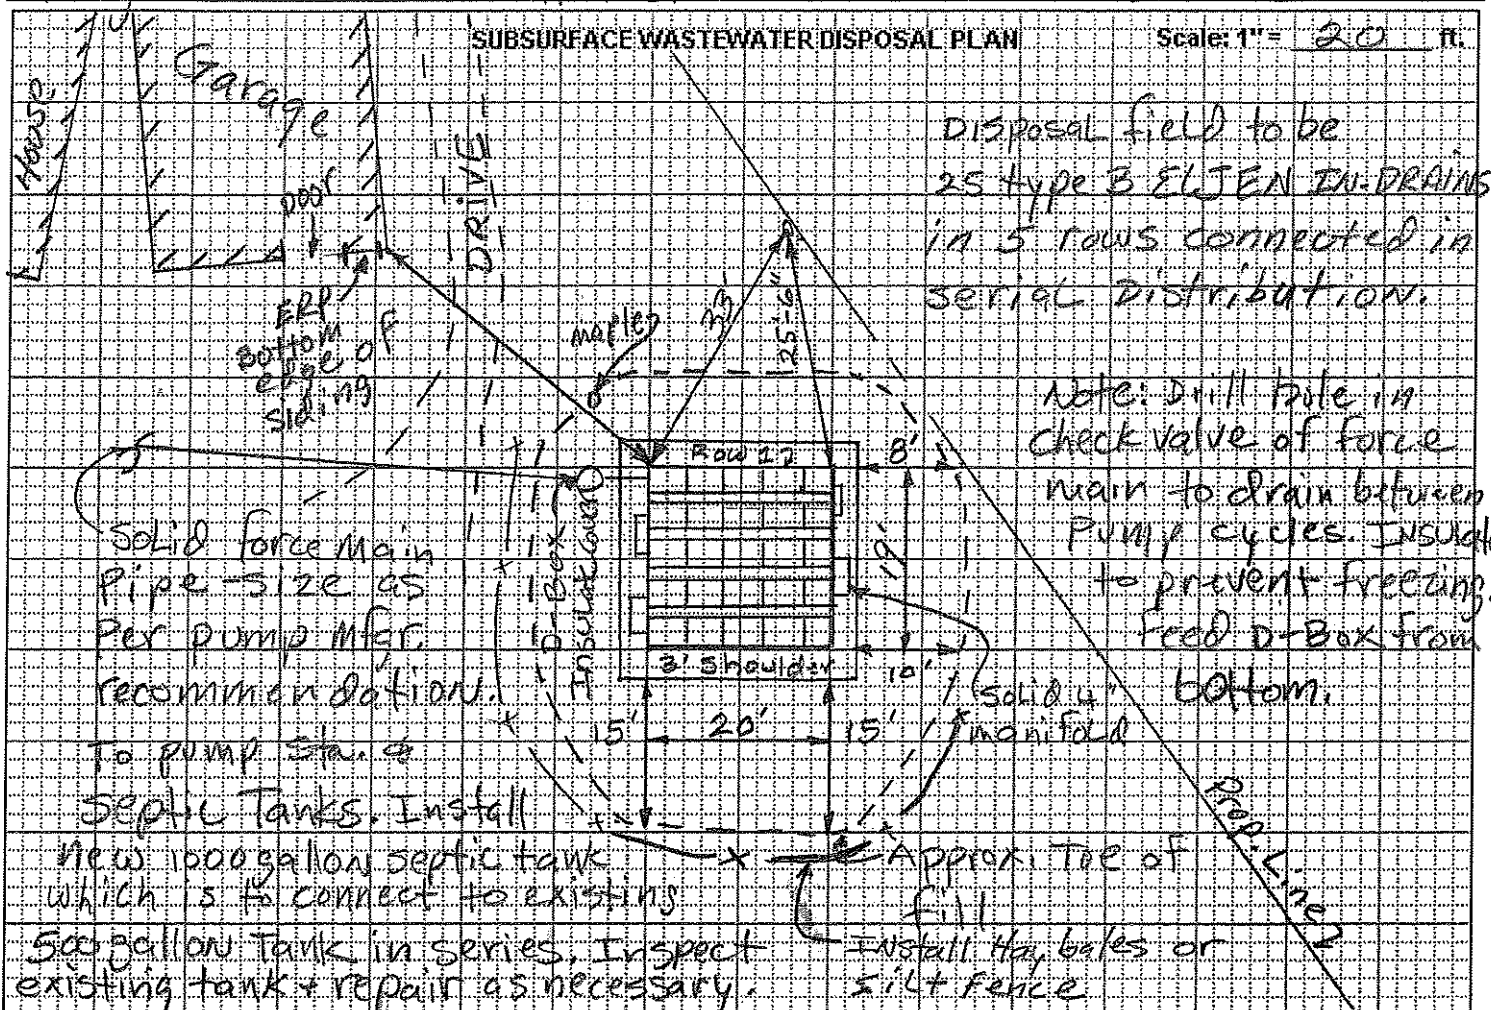 SUBSURFACE WASTEWATER DISPOSAL PLAN
Scale: 1" = 20 ft.
House
Garage
Door
DRIVE
ERP
Bottom
edge of
siding
maple
33'
25'-6"
Disposal field to be
25 type B ELJEN IN-DRAINS
in 5 rows connected in
serial Distribution.
Note: Drill hole in
check valve of force
main to drain between
Pump cycles. Insulate
to prevent freezing.
Feed D-Box from
bottom.
Row 1
8'
19'
10'
3' Shoulder
D-Box
Solid force main
Pipe-size as
Per pump Mfgr.
recommendation.
To pump Sta. &
Septic Tanks. Install
new 1000 gallon septic tank
which is to connect to existing
500 gallon Tank in series. Inspect
existing tank + repair as necessary.
15'
20'
15'
solid 4"
manifold
Approx. Toe of
fill
Install Hay bales or
silt fence
Prop. Line